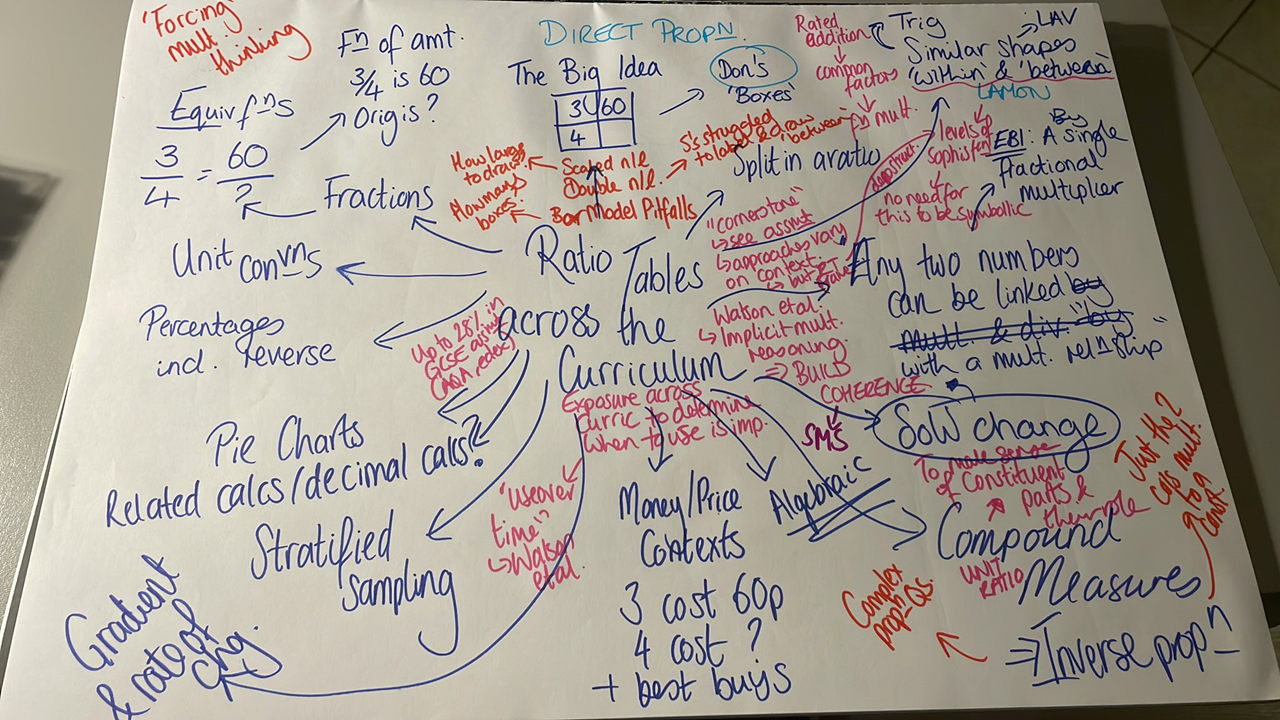 'Forcing
mult.
thinking
Fⁿ of amt.
3/4 is 60
Orig is?
DIRECT PROPⁿ.
The Big Idea
3 60
4
Don's
'Boxes'
Rated
addition
common
factors
fⁿ mult.
Trig
LAV
Similar shapes
'within' & 'between'
LAMON
Equiv fⁿs
3/4 = 60/?
Fractions
How large
to draw?
How many
boxes?
Scaled n/l
Double n/l.
Bar Model Pitfalls
S's struggled
to label & draw
'between'
Split in a ratio
levels of
sophis
no need for
this to be symbollic
EBI: A single
By
fractional
multiplier
Unit convⁿs
Ratio Tables
across the
Curriculum
"cornerstone"
see assmt
approaches vary
on context.
"Any two numbers
can be linked by
mult. & div. "by
with a mult. relⁿship"
Percentages
incl. reverse
Up to 28% in
GCSE
Watson et al.
Implicit mult.
reasoning.
⇒ BUILD
COHERENCE
SMS
Exposure across
curric to determine
when to use is imp.
SoW change
To make sense
of Constituent
parts &
the whole
Just the 2
Pie Charts
Related calcs/decimal calcs?
Stratified
sampling
'use over
time'
Watson
et al.
Money/Price
Contexts
3 cost 60p
4 cost ?
+ best buys
Algebraic
Compound
Measures
UNIT
RATIO
Complex
propⁿ Qs.
⇒ Inverse propⁿ
Gradient
& rate of
chg.